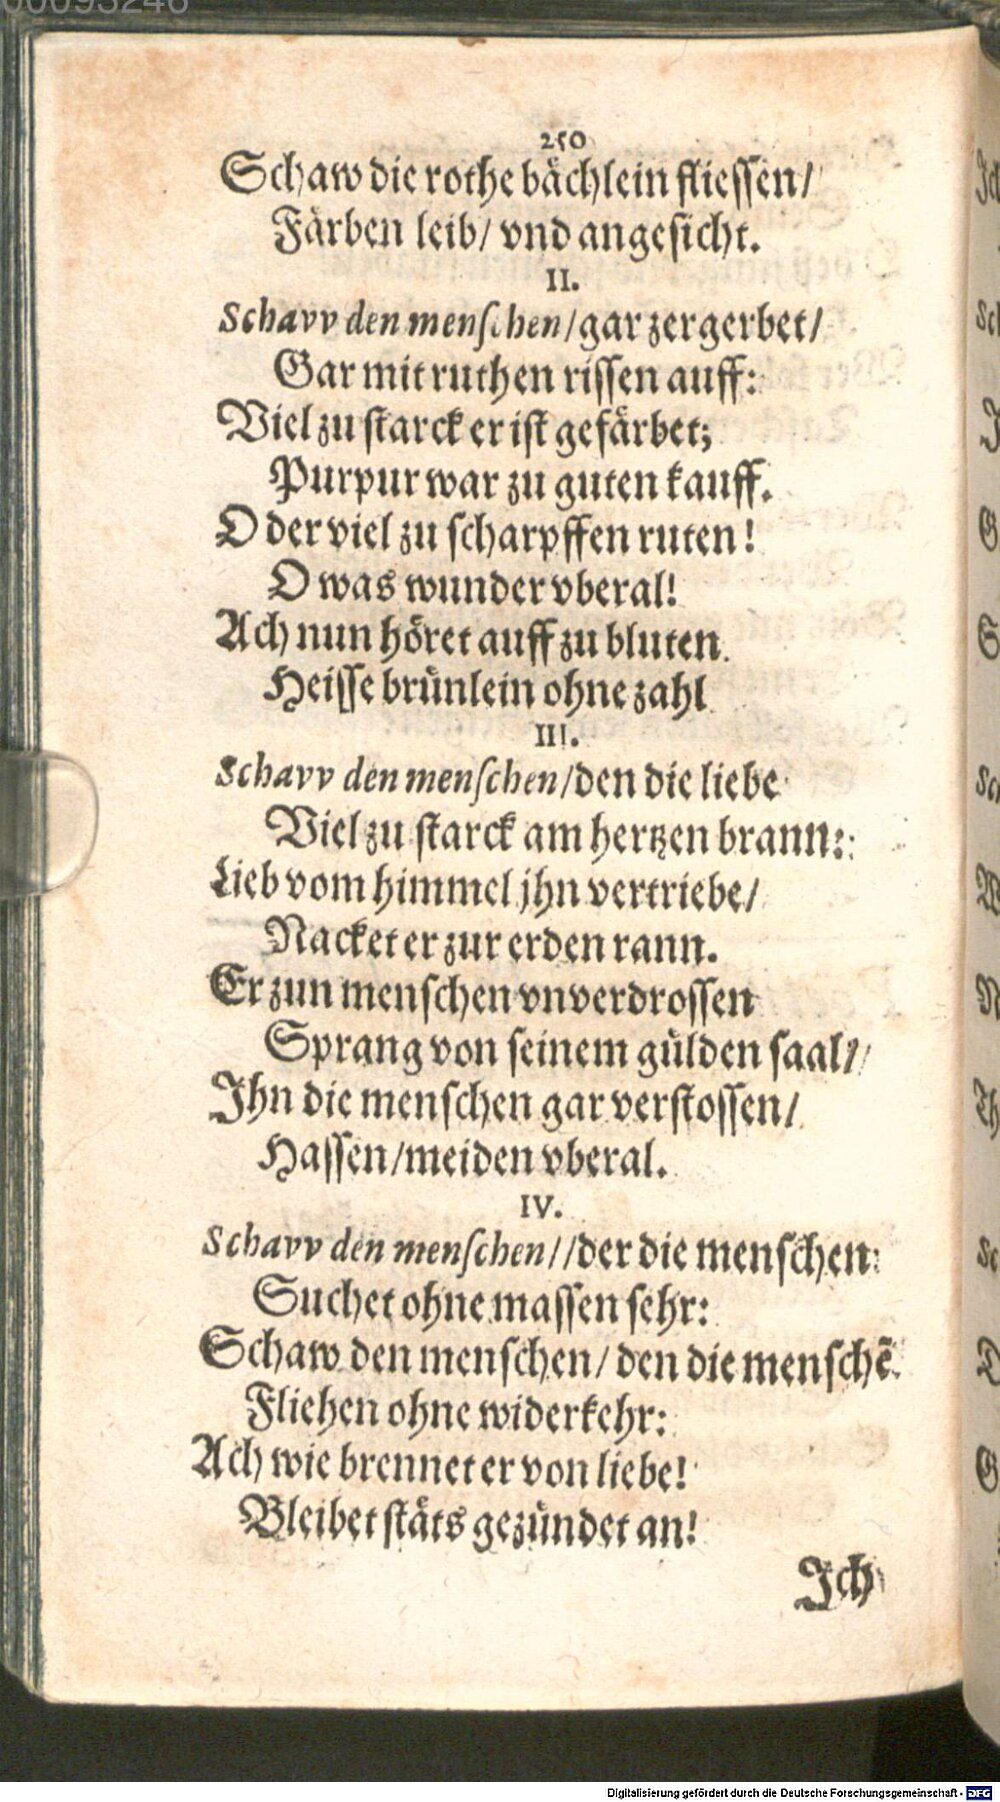 00093246
250
Schaw die rothe bächlein fliessen/
Färben leib/ vnd angesicht.
II.
Schavv den menſchen/gar zergerbet/
Gar mit ruthen rissen auff:
Viel zu ſtarck er iſt gefärbet;
Purpur war zu guten kauff.
O der viel zu ſcharpffen ruten!
O was wunder vberal!
Ach nun höret auff zu bluten
Heisse brünlein ohne zahl
III.
Schavv den menſchen/den die liebe
Viel zu ſtarck am hertzen brann:
Lieb vom himmel jhn vertriebe/
Nacket er zur erden rann.
Er zun menſchen vnverdroſſen
Sprang von ſeinem gülden ſaal/
Ihn die menſchen gar verſtoſſen/
Haſſen/meiden vberal.
IV.
Schavv den menſchen//der die menſchen
Suchet ohne maſſen ſehr:
Schaw den menſchen/ den die menſchẽ
Fliehen ohne widerkehr:
Ach wie brennet er von liebe!
Bleibet ſtäts gezündet an!
Ich
Digitalisierung gefördert durch die Deutsche Forschungsgemeinschaft - DFG